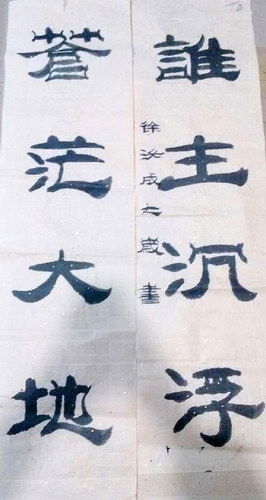 蒼茫大地
誰主沉浮
徐汝成之歲書